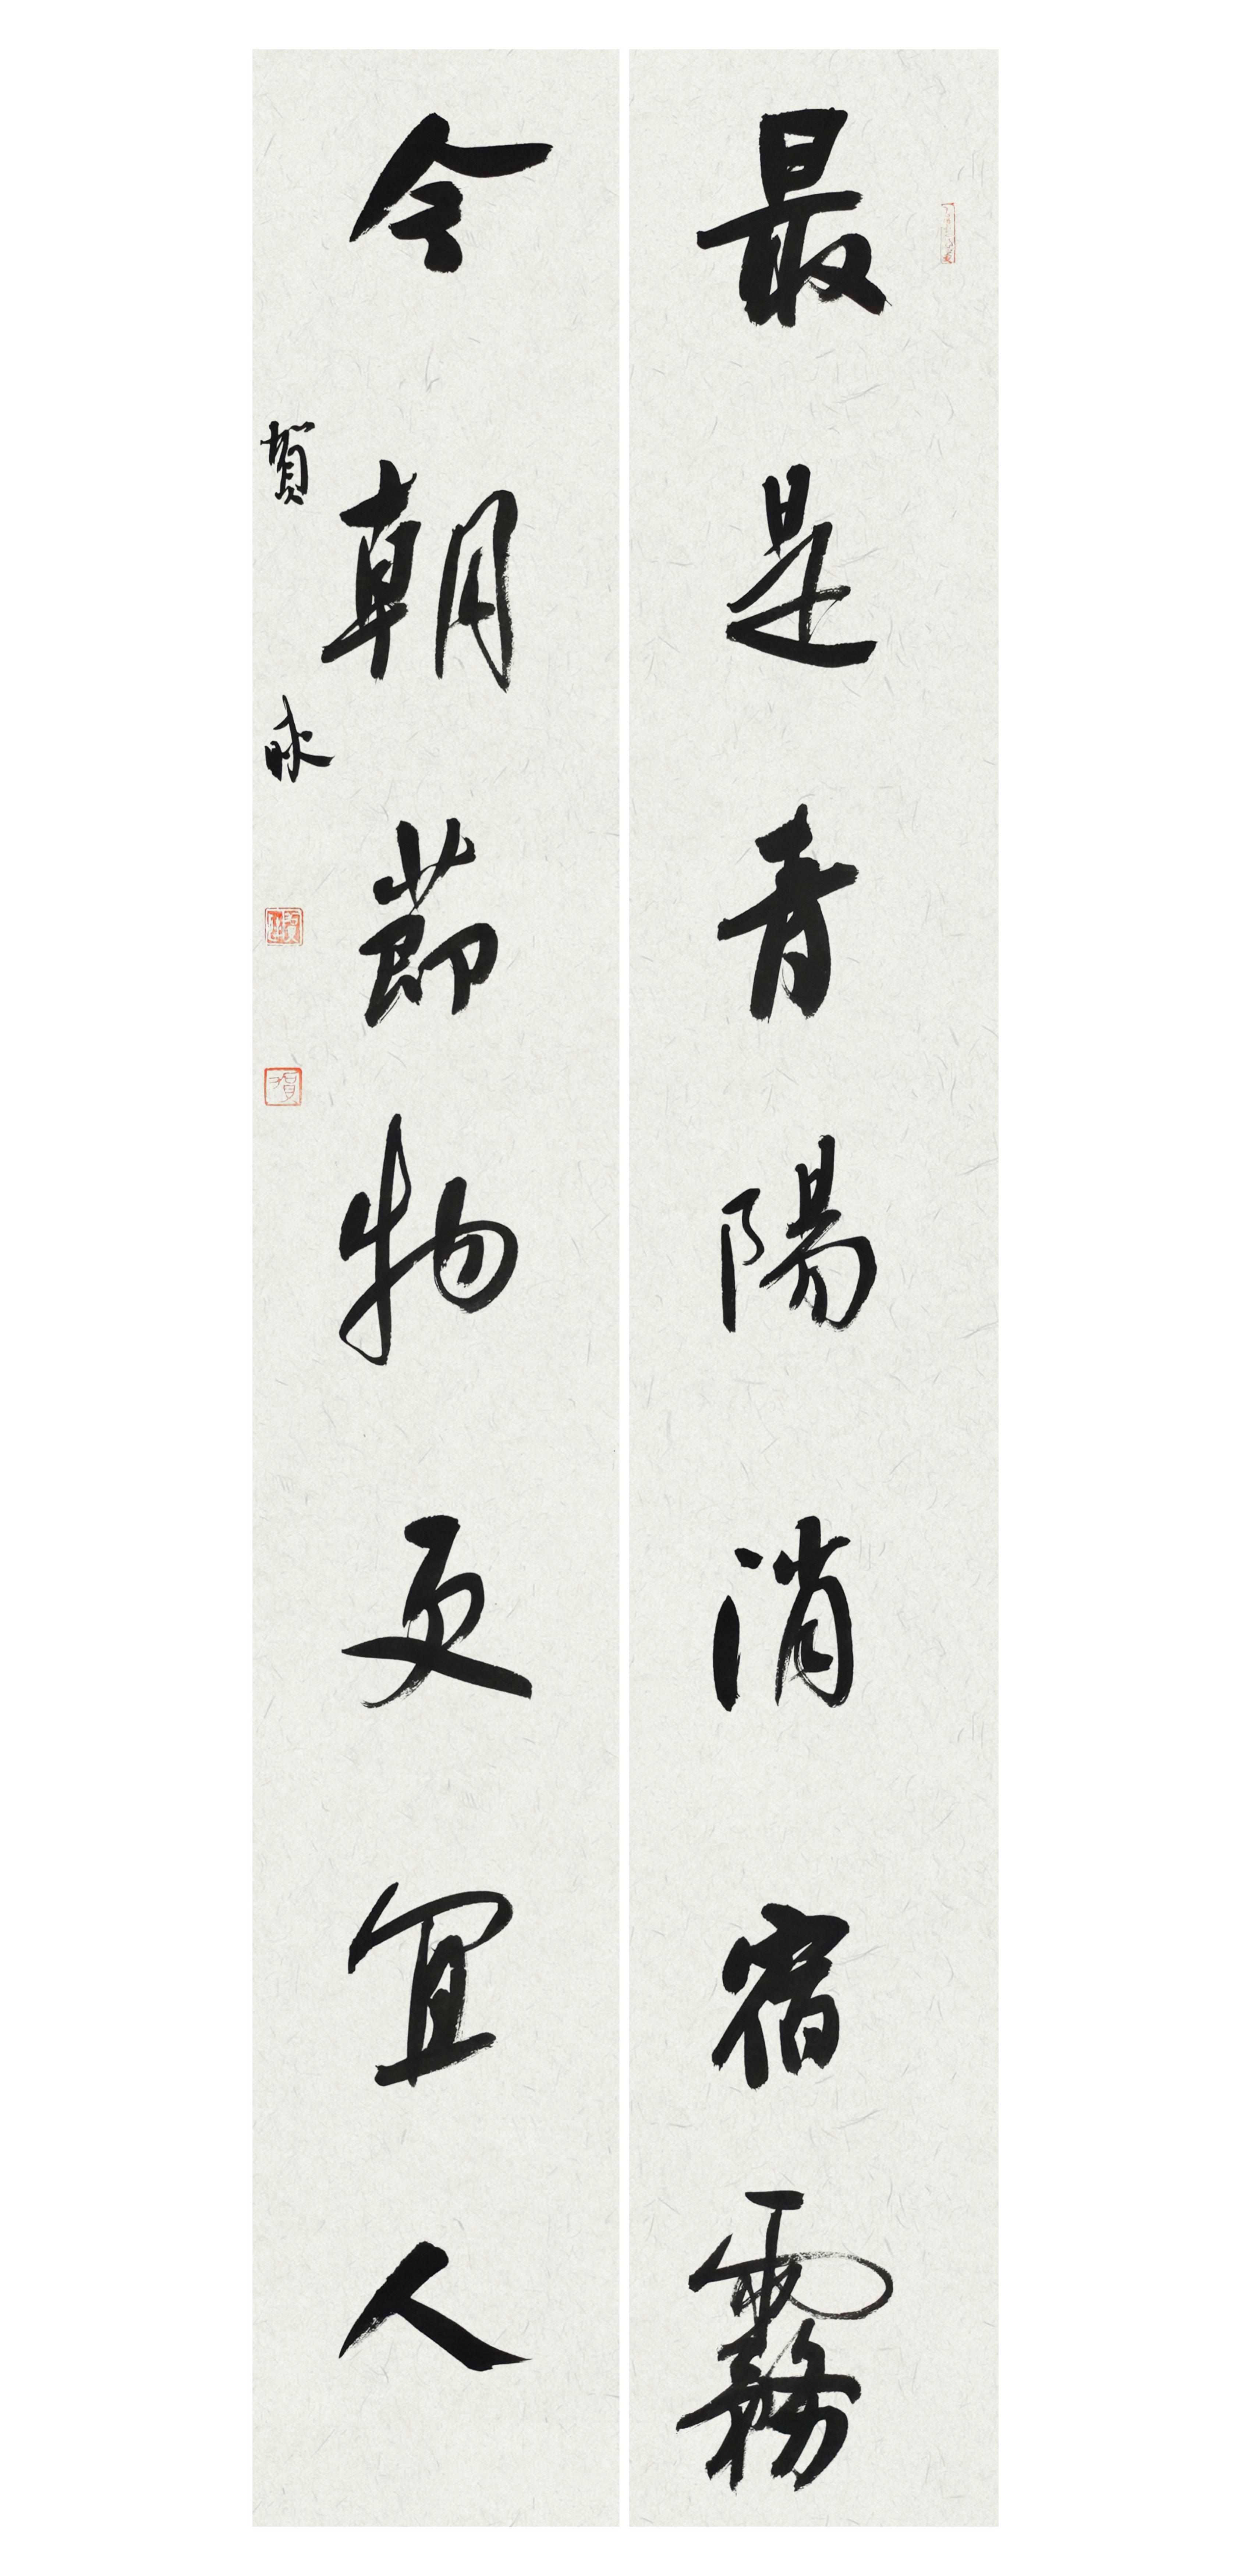 最是青陽消宿霧
今朝節物更宜人
賀咏